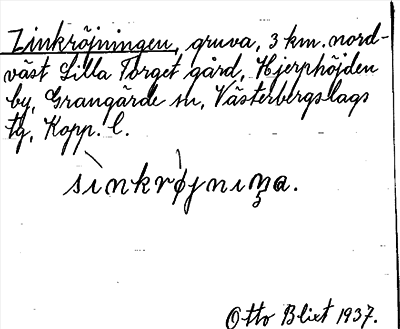 Zinkröjningen, gruva, 3 km. nord-
väst Lilla Torget gård, Hjerphöjden
by, Grangärde sn, Västerbergslags
tg, Kopp. l.
sìnkrøjnıŋa.
Otto Blixt 1937.